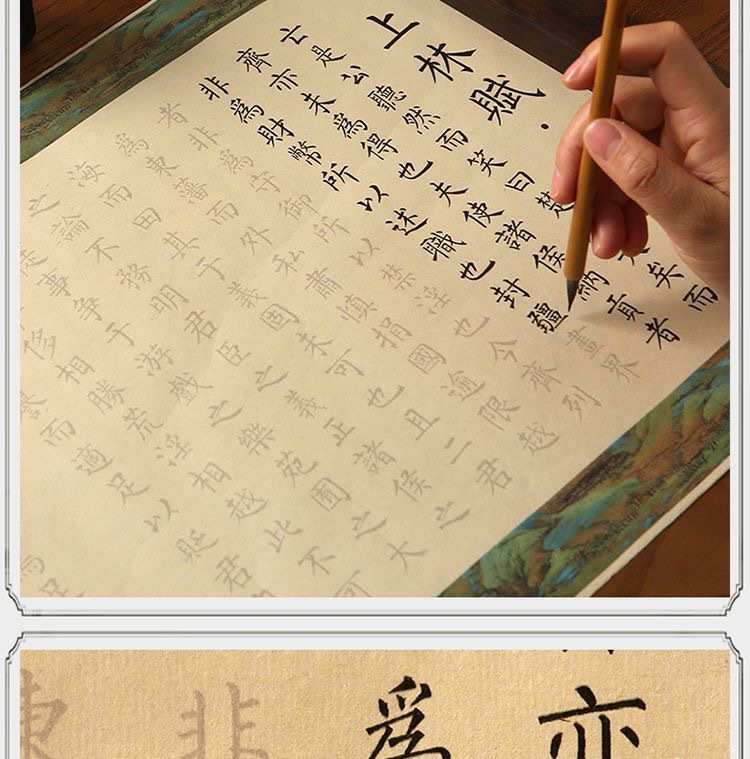 上林賦
亡是公聽然而笑曰楚矣而
齊亦未為得也夫使諸侯納貢者
非為財幣所以述職也封疆畫界
者非為守御所以禁淫也今齊列
為東藩而外私肅慎捐國逾限越
海而田其于義固未可也且二君
之論不務明君臣之義正諸侯之
徒事爭于游戲之樂苑囿之大
侈相勝荒淫相越此不可
譽而適足以貶君
亦
為
非
東